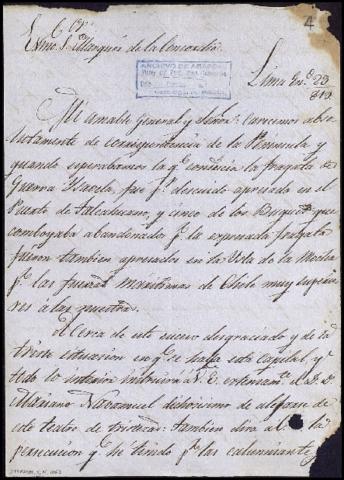 4
Exmo. Sr. Marqués de la Concordia
Lima En.o 23
819
ARCHIVO DE ABASCAL
Mi amable General y Señor: Carecemos abso
lutamente de correspondencia de la Peninsula y
quando esperabamos la q.e conducia la fragata de
Guerra Ysavela, fue p.r descuido apresada en el
Puerto de Talcahuano, y cinco de los Buques que
comboyaba abandonados p.r la expresada fragata
fueron tambien apresados en la Ysla de la Mocha
p.r las fuerzas maritimas de Chile muy superio
res á las nuestras.
Acerca de este suceso desgraciado y de la
triste situacion en q.e se halla esta Capital, y
todo lo interior instruirá á V. E. extensam.te el S. D.
Mariano Navamuel dichosisimo de alejarse de
este teatro de tristezas: tambien dira al la
persecucion q.e he tenido p.r las calumniantes